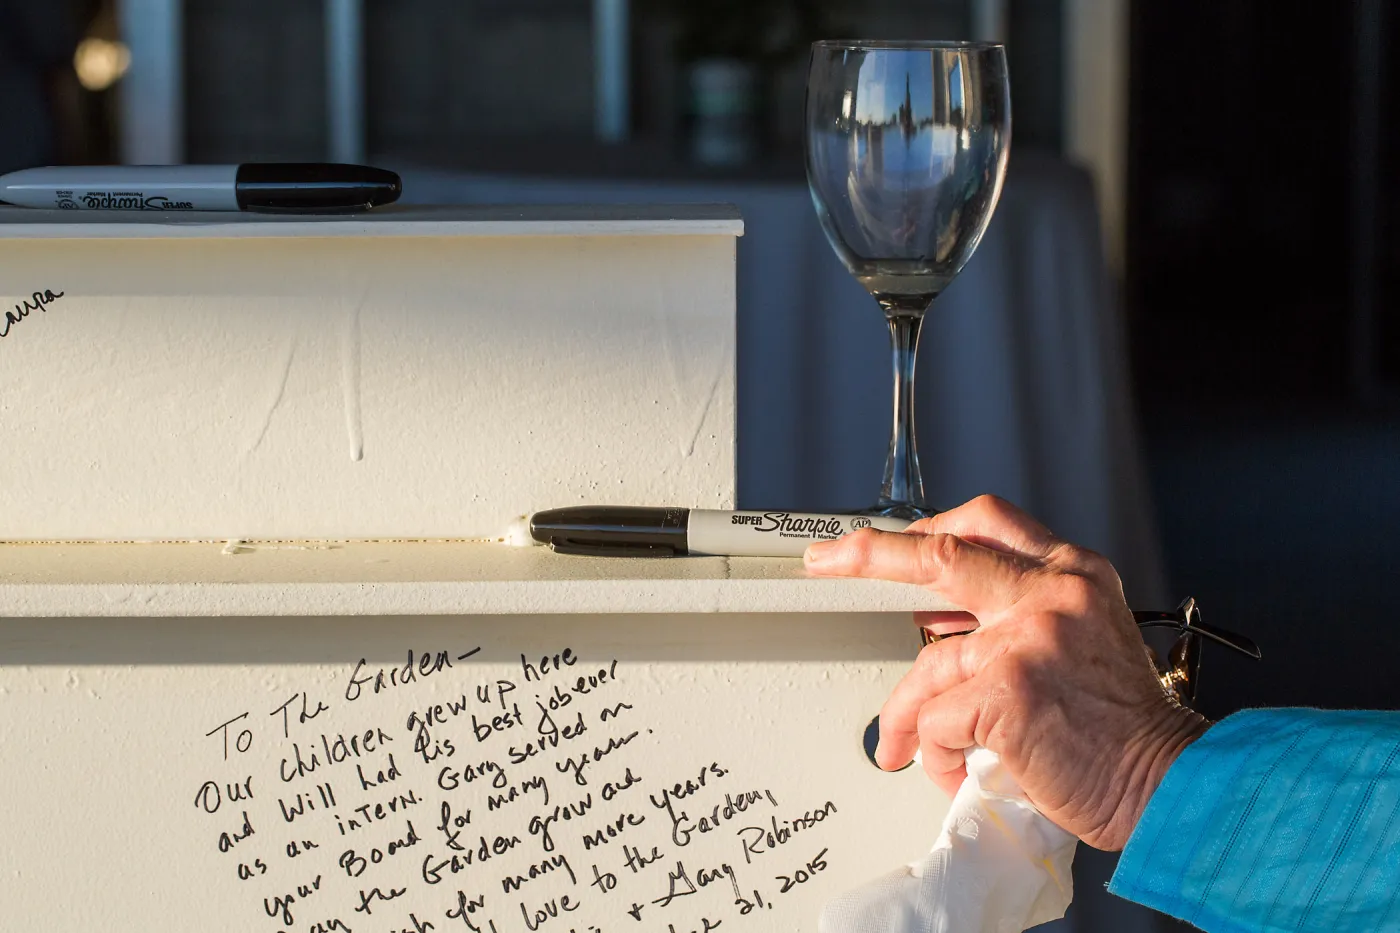 SUPER Sharpie
Permanent Marker
Laura
SUPER Sharpie AP
Permanent Marker
To The Garden—
Our children grew up here
and Will had his best job ever
as an intern. Gary served on
your Board for many years.
the Garden grow and
for many more years.
love to the Garden,
+ Gary Robinson
21, 2015